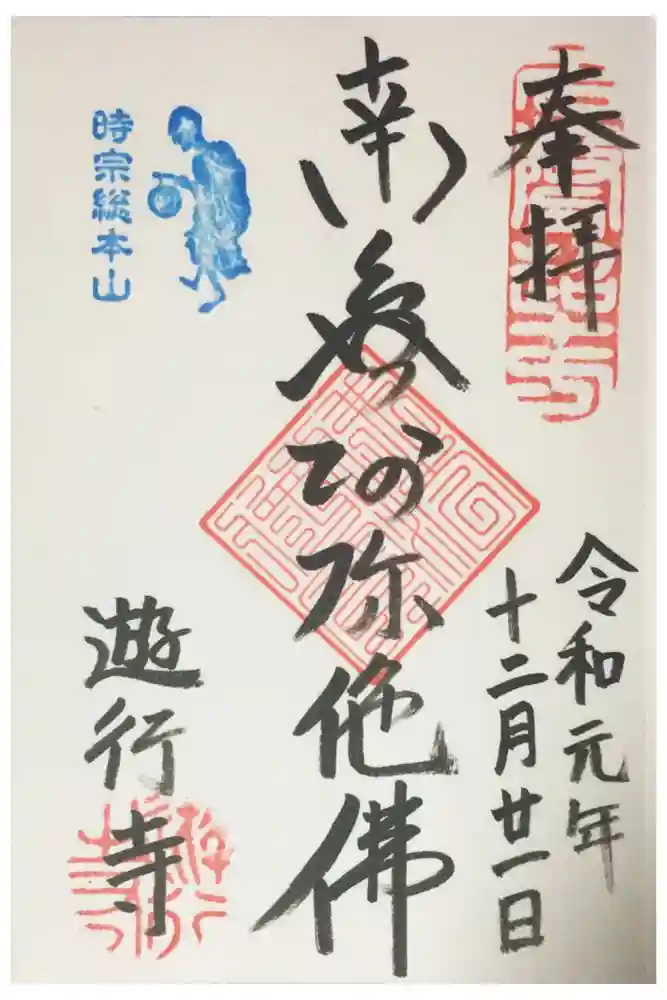 奉拝
令和元年
十二月廿一日
南無阿弥他佛
時宗総本山
遊行寺